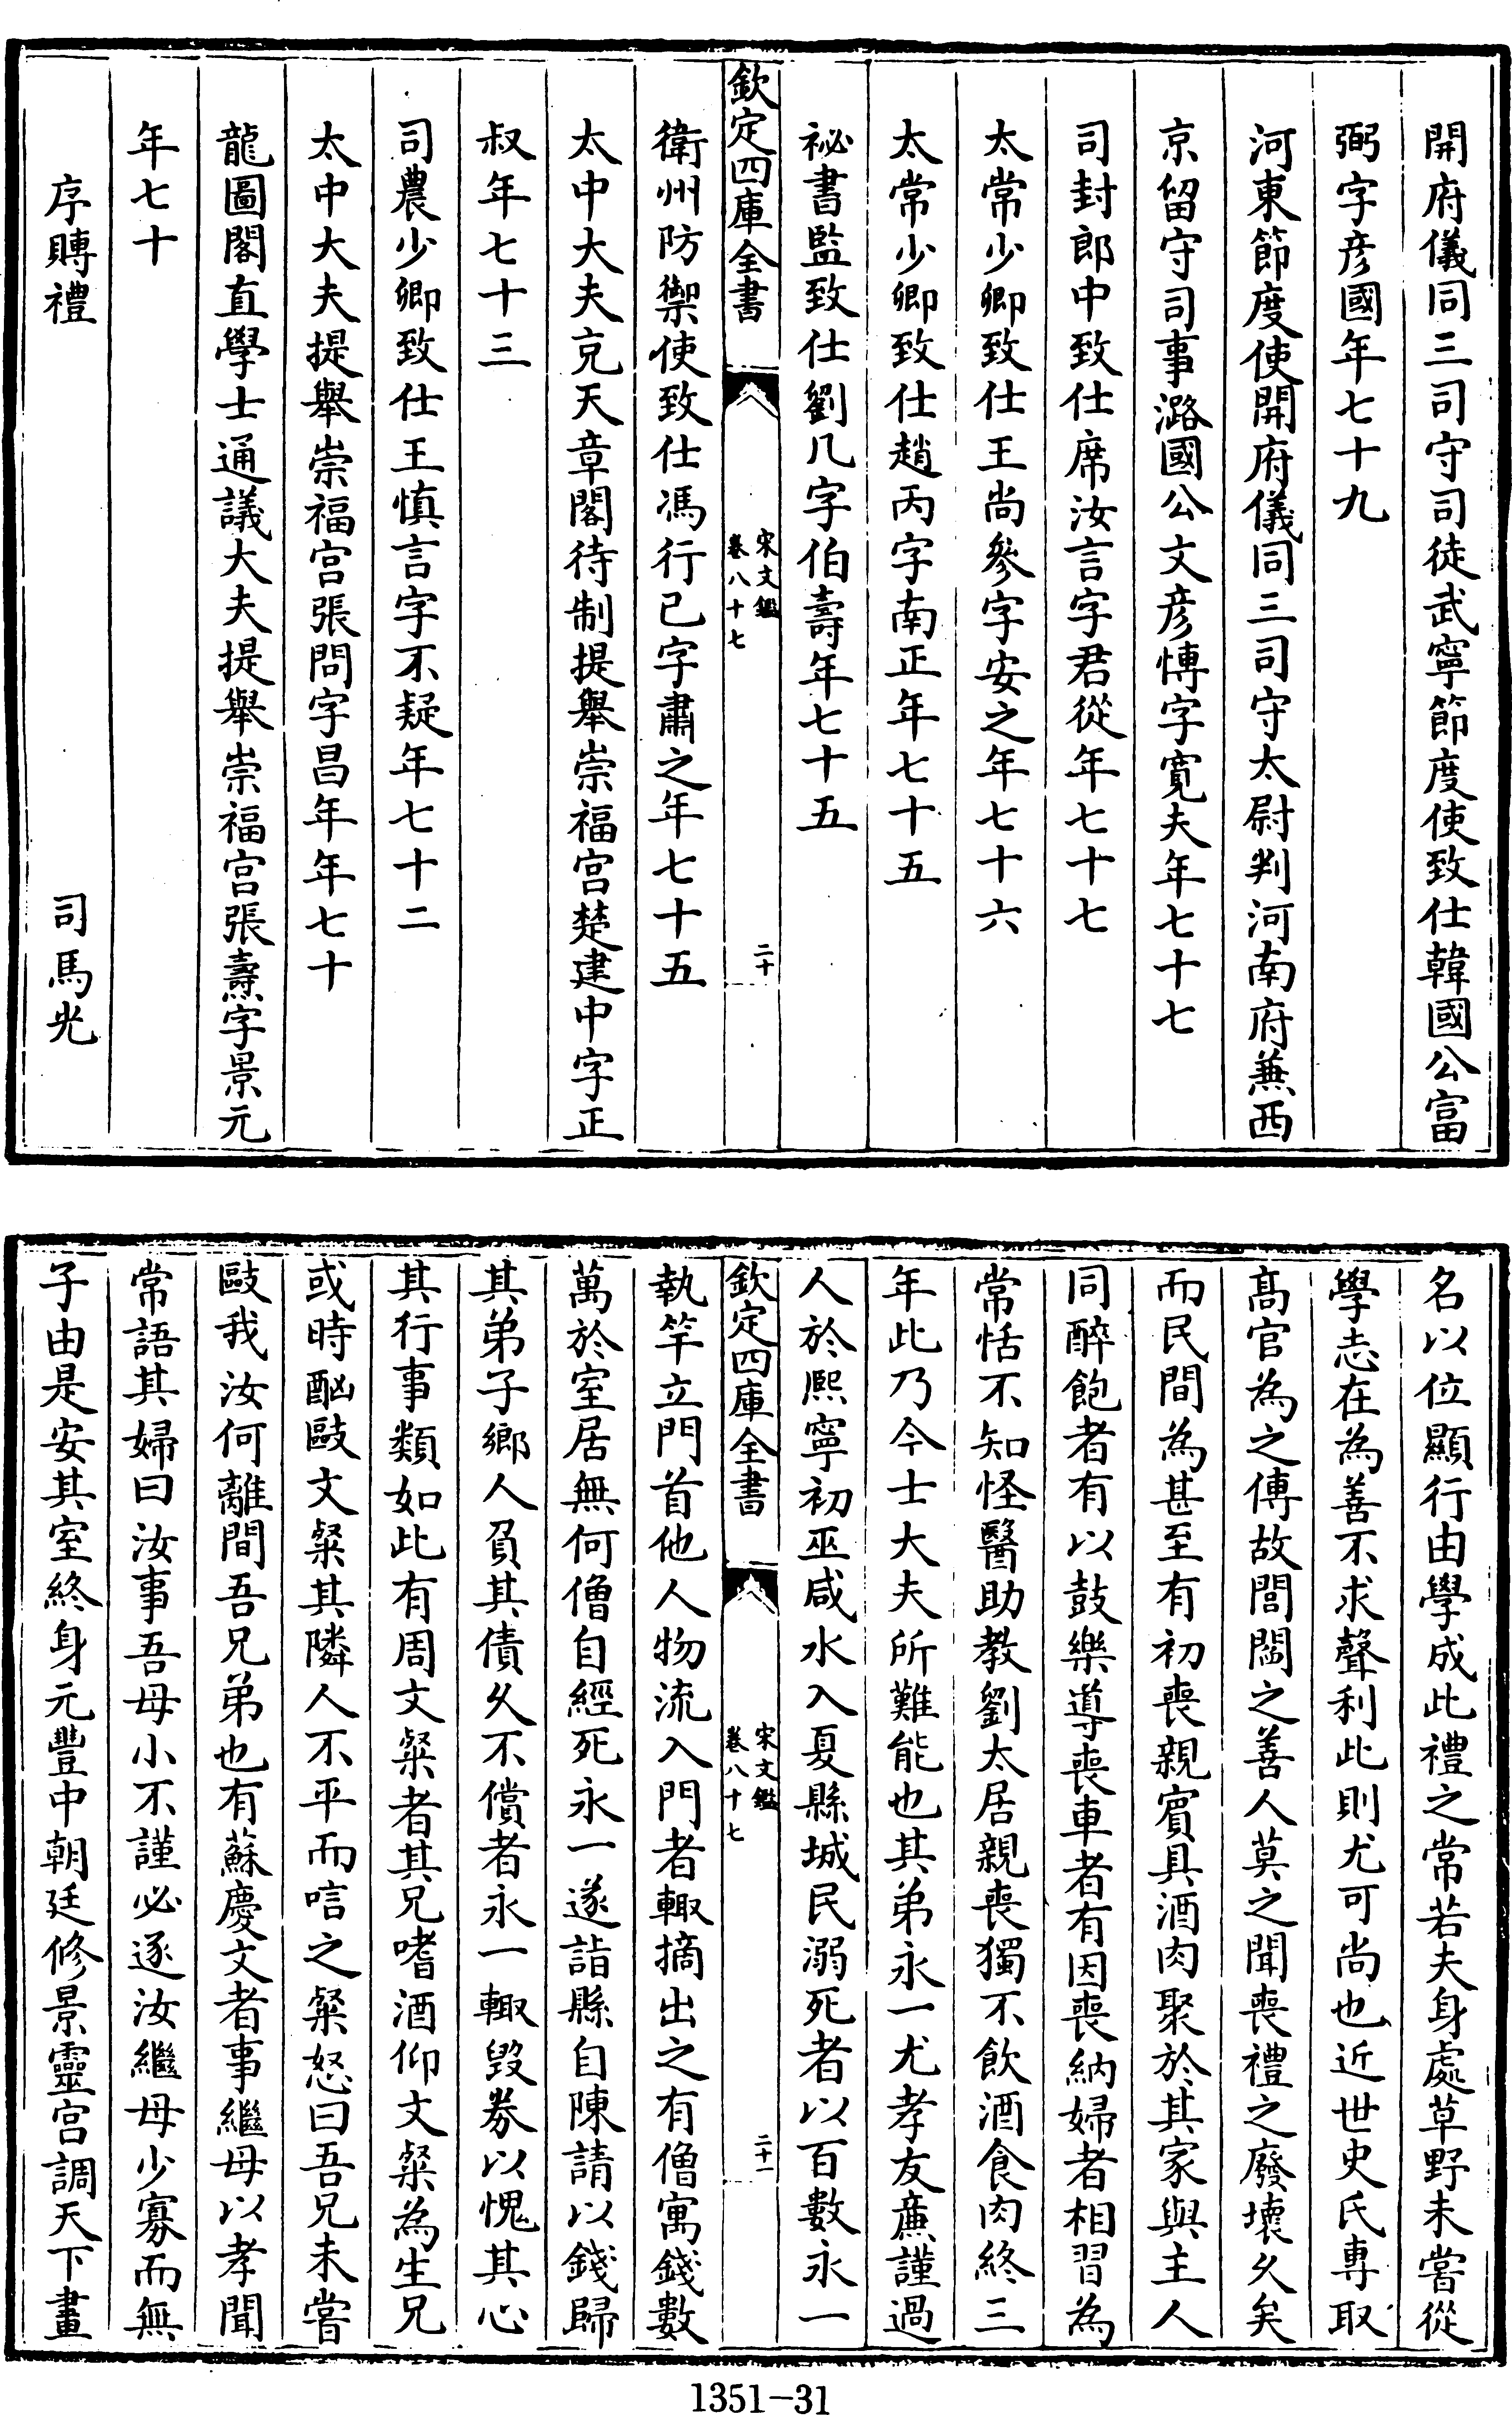 開府儀同三司守司徒武寧節度使致仕韓國公富
弼字彦國年七十九
河東節度使開府儀同三司守太尉判河南府兼西
京留守司事潞國公文彦愽字寬夫年七十七
司封郎中致仕席汝言字君從年七十七
太常少卿致仕王尚參字安之年七十六
太常少卿致仕趙丙字南正年七十五
祕書監致仕劉几字伯壽年七十五
欽定四庫全書
宋文鑑
卷八十七
二十
衛州防禦使致仕馮行已字肅之年七十五
太中大夫克天章閣待制提舉崇福宫楚建中字正
叔年七十三
司農少卿致仕王慎言字不疑年七十二
太中大夫提舉崇福宫張問字昌年年七十
龍圖閣直學士通議大夫提舉崇福宫張燾字景元
年七十
序賻禮 司馬光
名以位顯行由學成此禮之常若夫身處草野未嘗從
學志在為善不求聲利此則尤可尚也近世史氏專取
髙官為之傳故閭閻之善人莫之聞喪禮之廢壞乆矣
而民間為甚至有初喪親賓具酒肉聚於其家與主人
同醉飽者有以鼓樂導喪車者有因喪納婦者相習為
常恬不知怪醫助教劉太居親喪獨不飲酒食肉終三
年此乃今士大夫所難能也其弟永一尤孝友亷謹過
人於熈寧初巫咸水入夏縣城民溺死者以百數永一
欽定四庫全書
宋文鑑
卷八十七
二十一
執竿立門首他人物流入門者輙摘出之有僧寓錢數
萬於室居無何僧自經死永一遂詣縣自陳請以錢歸
其弟子鄉人負其債乆不償者永一輙毁劵以愧其心
其行事類如此有周文粲者其兄嗜酒仰文粲為生兄
或時酗毆文粲其隣人不平而唁之粲怒曰吾兄未嘗
毆我汝何離間吾兄弟也有蘇慶文者事繼母以孝聞
常語其婦曰汝事吾母小不謹必逐汝繼母少寡而無
子由是安其室終身元豐中朝廷修景靈宫調天下畫
1351-31